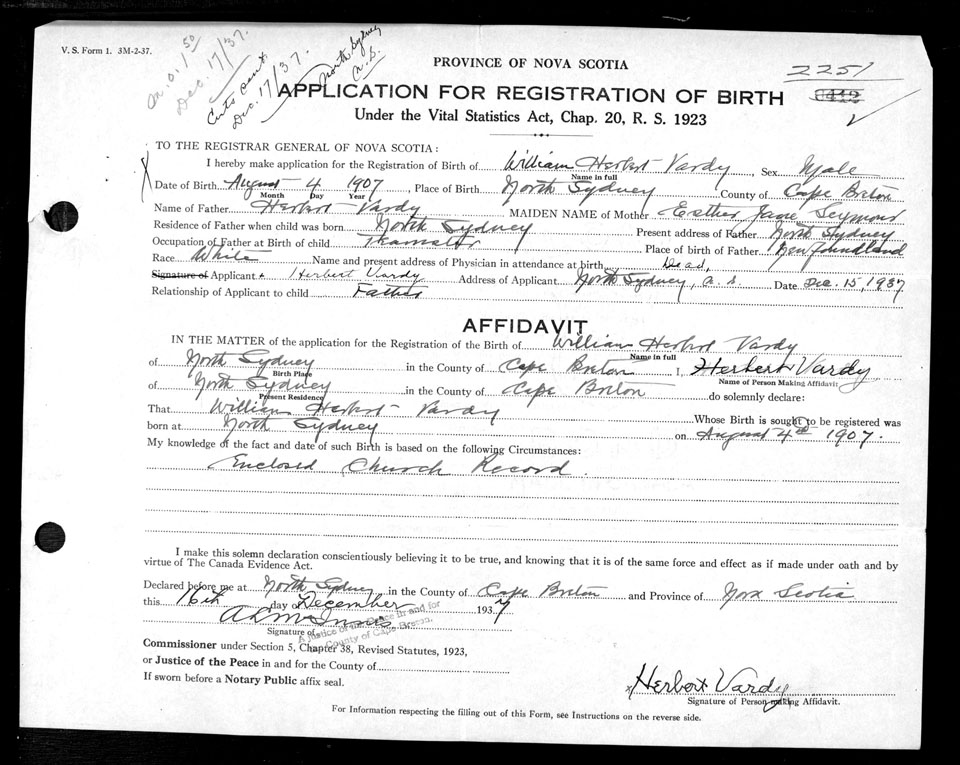 V. S. Form 1. 3M-2-37.
M.O. 1 50
Dec. 17/37.
Certs sent
Dec. 17/37.
North Sydney
N.S.
PROVINCE OF NOVA SCOTIA
2251
APPLICATION FOR REGISTRATION OF BIRTH
Under the Vital Statistics Act, Chap. 20, R. S. 1923
TO THE REGISTRAR GENERAL OF NOVA SCOTIA:
I hereby make application for the Registration of Birth of William Herbert Vardy Sex Male
Name in full
Date of Birth August 4 1907, Place of Birth North Sydney County of Cape Breton
Month Day Year
Name of Father Herbert Vardy MAIDEN NAME of Mother Esther Jane Seymour
Residence of Father when child was born North Sydney Present address of Father North Sydney
Occupation of Father at Birth of child Teamster Place of birth of Father Newfoundland
Race White Name and present address of Physician in attendance at birth Dead,
Signature of Applicant Herbert Vardy Address of Applicant North Sydney, N. S. Date Dec. 15, 1937
Relationship of Applicant to child Father
AFFIDAVIT
IN THE MATTER of the application for the Registration of the Birth of William Herbert Vardy
Name in full
of North Sydney in the County of Cape Breton I, Herbert Vardy
Birth Place Name of Person Making Affidavit
of North Sydney in the County of Cape Breton do solemnly declare:
Present Residence
That William Herbert Vardy Whose Birth is sought to be registered was
born at North Sydney on August 4th 1907.
My knowledge of the fact and date of such Birth is based on the following Circumstances:
Enclosed Church Record.
I make this solemn declaration conscientiously believing it to be true, and knowing that it is of the same force and effect as if made under oath and by
virtue of The Canada Evidence Act.
Declared before me at North Sydney in the County of Cape Breton and Province of Nova Scotia
this 16th day of December 1937
Signature of
A Justice of the Peace in and for
the County of Cape Breton.
Commissioner under Section 5, Chapter 38, Revised Statutes, 1923,
or Justice of the Peace in and for the County of
If sworn before a Notary Public affix seal.
x Herbert Vardy
Signature of Person making Affidavit.
For Information respecting the filling out of this Form, see Instructions on the reverse side.